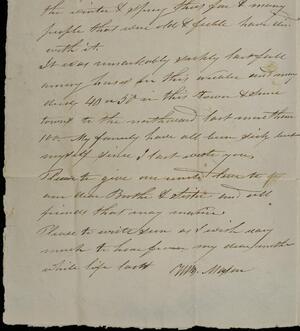 the winter & spring thus far & many
people that were old & feeble have died
with it.
It was remarkably sickly last fall
among horses for this winter and many
died 40 or 50 in this town & some
towns to the northward last more than
100. My family have all been sick but
myself since I last wrote you,
Please to give our united love to
our dear Brother & Sister and all
friends that may enquire.
Please to write soon as I wish very
much to hear from my dear mother
while life lasts Wm. Mason